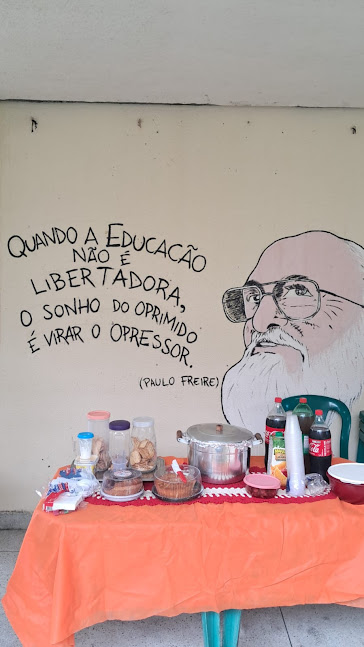 QUANDO A EDUCAÇÃO
NÃO É
LIBERTADORA,
O SONHO DO OPRIMIDO
É VIRAR O OPRESSOR.
(PAULO FREIRE)
Coca-Cola